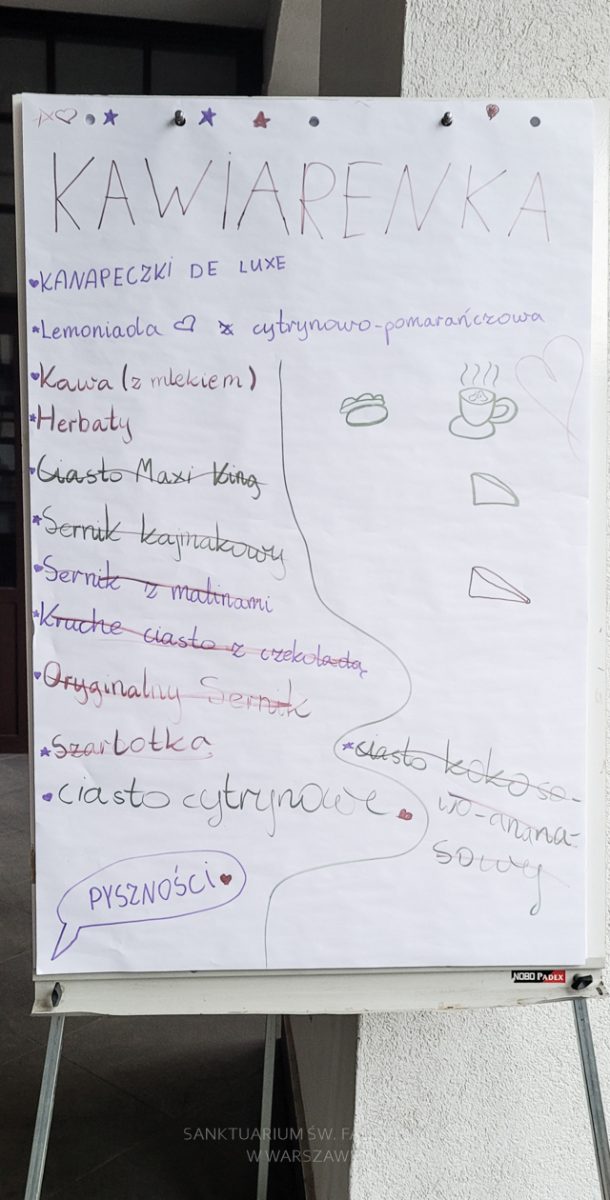 KAWIARENKA
KANAPECZKI DE LUXE
Lemoniada cytrynowo-pomarańczowa
Kawa (z mlekiem)
Herbaty
Ciasto Maxi King
Sernik kajmakowy
Sernik z malinami
Kruche ciasto z czekoladą
Oryginalny Sernik
Szarlotka
ciasto cytrynowe
ciasto kokoso-
wo-anana-
sowy
PYSZNOŚCI
NOBO PADEX
SANKTUARIUM ŚW.
W WARSZAWIE